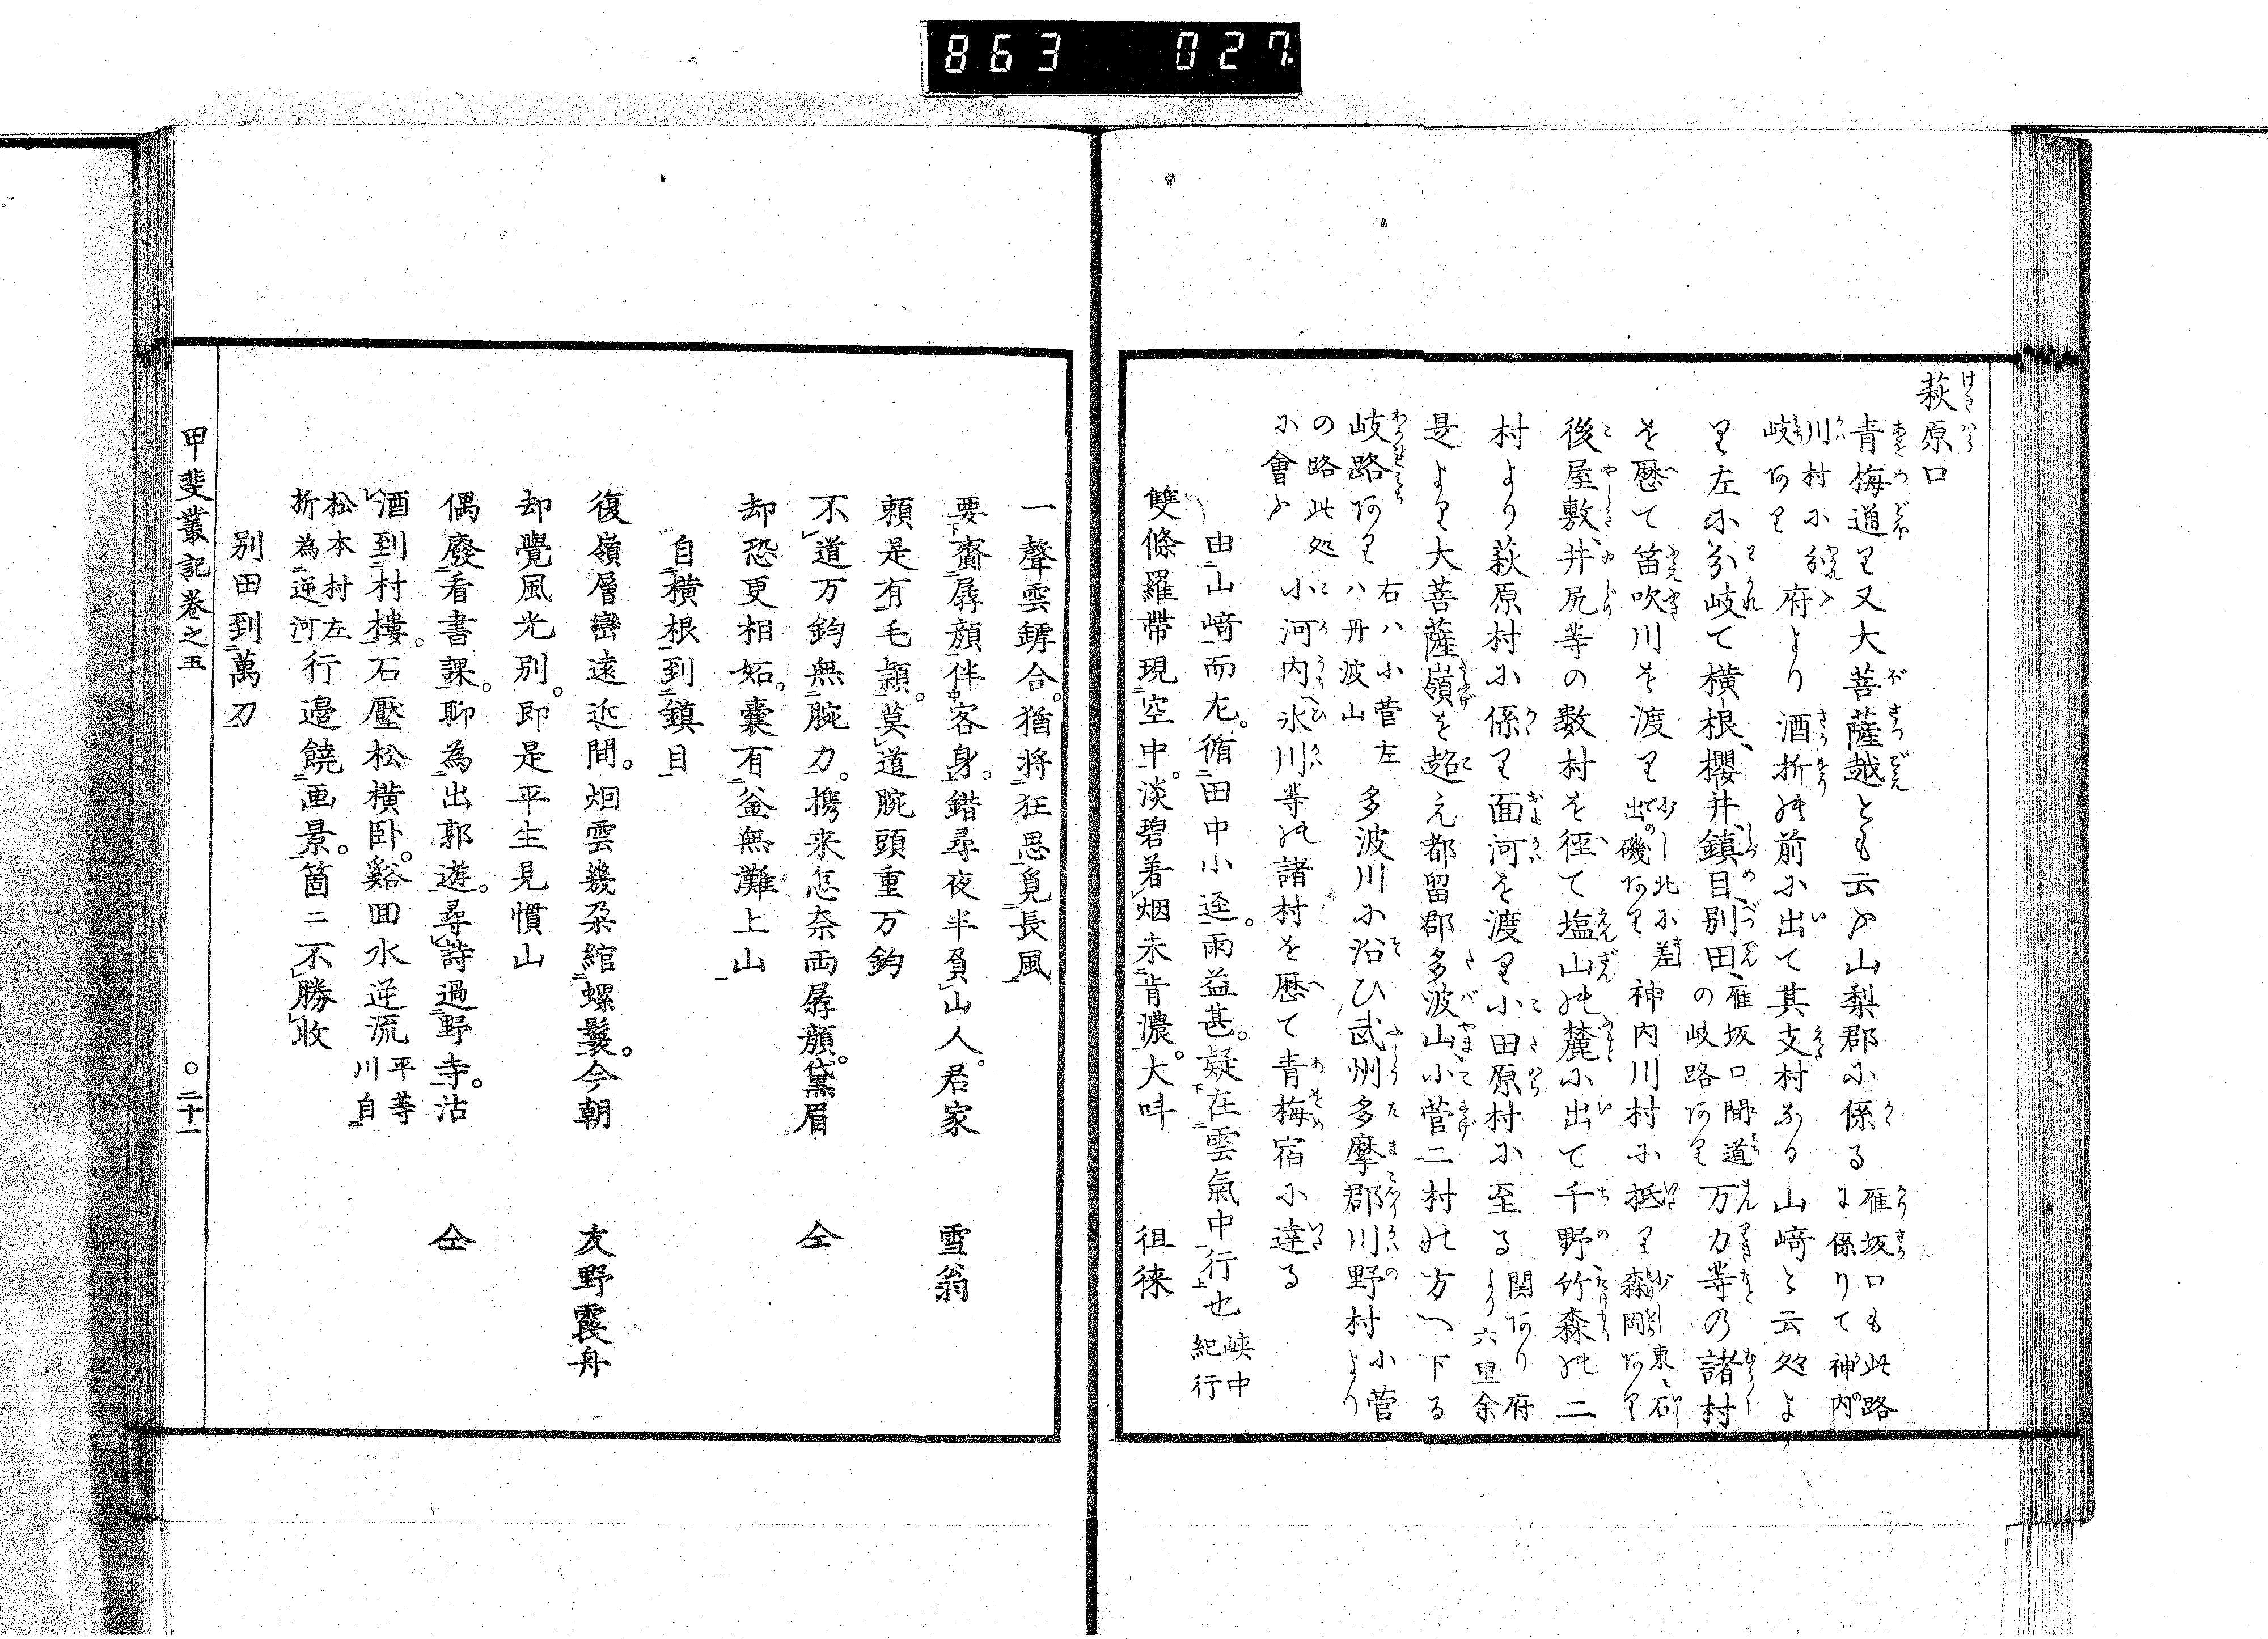 863 027
萩原口
青梅道又大菩薩越とも云ふ山梨郡に係る雁坂口も此路に係りて神内
川村に分れ岐あり府より酒折の前に出て其支村なる山﨑と云処よ
り左に分岐て横根、櫻井、鎮目、別田、雁坂口間道の岐路あり万力等の諸村
を歴て笛吹川を渡り少し北に差出の磯あり神内川村に抵り少引東に石森岡あり
後屋敷、井尻等の数村を径て塩山の麓に出て千野、竹森の二
村より萩原村に係り面河を渡り小田原村に至る関あり府より六里余
是より大菩薩嶺を超え都留郡多波山小菅二村の方へ下る
岐路あり右ハ小菅左ハ丹波山多波川に沿ひ武州多摩郡川野村小菅より
の路此処に會ふ小河内、氷川等の諸村を歴て青梅宿に達る
由山﨑而左。循田中小逕。雨益甚。疑在雲氣中行也峡中紀行
雙條羅帶現空中。淡碧着烟未肯濃。大呌 徂徠
一聲雲罅合。猶將狂思覓長風
要齎孱顔伴客身。錯尋夜半負山人。君家 雪翁
頼是有毛頴。莫道腕頭重万鈞
不道万鈞無腕力。携来怎奈両孱顔。黛眉 仝
却恐更相妬。嚢有釜無灘上山
自橫根到鎮目
復嶺層巒遠近間。烟雲幾朶綰螺鬟。今朝 友野霞舟
却覺風光別。即是平生見慣山
偶廢看書課。聊為出郭遊。尋詩過野寺。沽 仝
酒到村樓。石壓松橫卧。谿回水逆流平等川自
松本村左折為逆河行邉饒画景。箇二不勝收
別田到萬刀
甲斐叢記巻之五 〇二十一